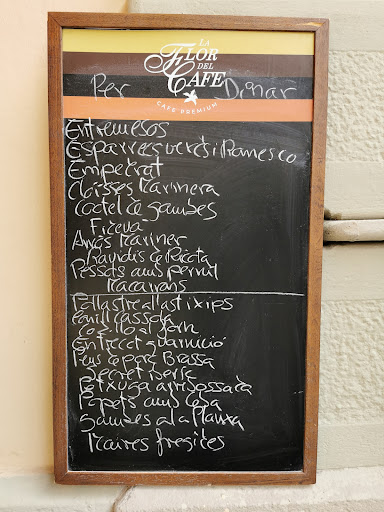 LA
FLOR
DEL
CAFE
CAFÉ PREMIUM
Per Dinar
Entremesos
Esparrecs verets i Romesco
Empedrat
Cloïsses Marinera
Coctel de Gambes
Fideva
Arròs Mariner
Raviolis de Ricota
Pessols amb pernil
Macarrons
Pollastre allast i xips
Conill Cassola
Costello al forn
Entrecot guarnició
Peus de porc Brassa
Secret iberic
Petxuga arrebossada
Popets amb ceba
Gambes a la Planxa
Maires fregites